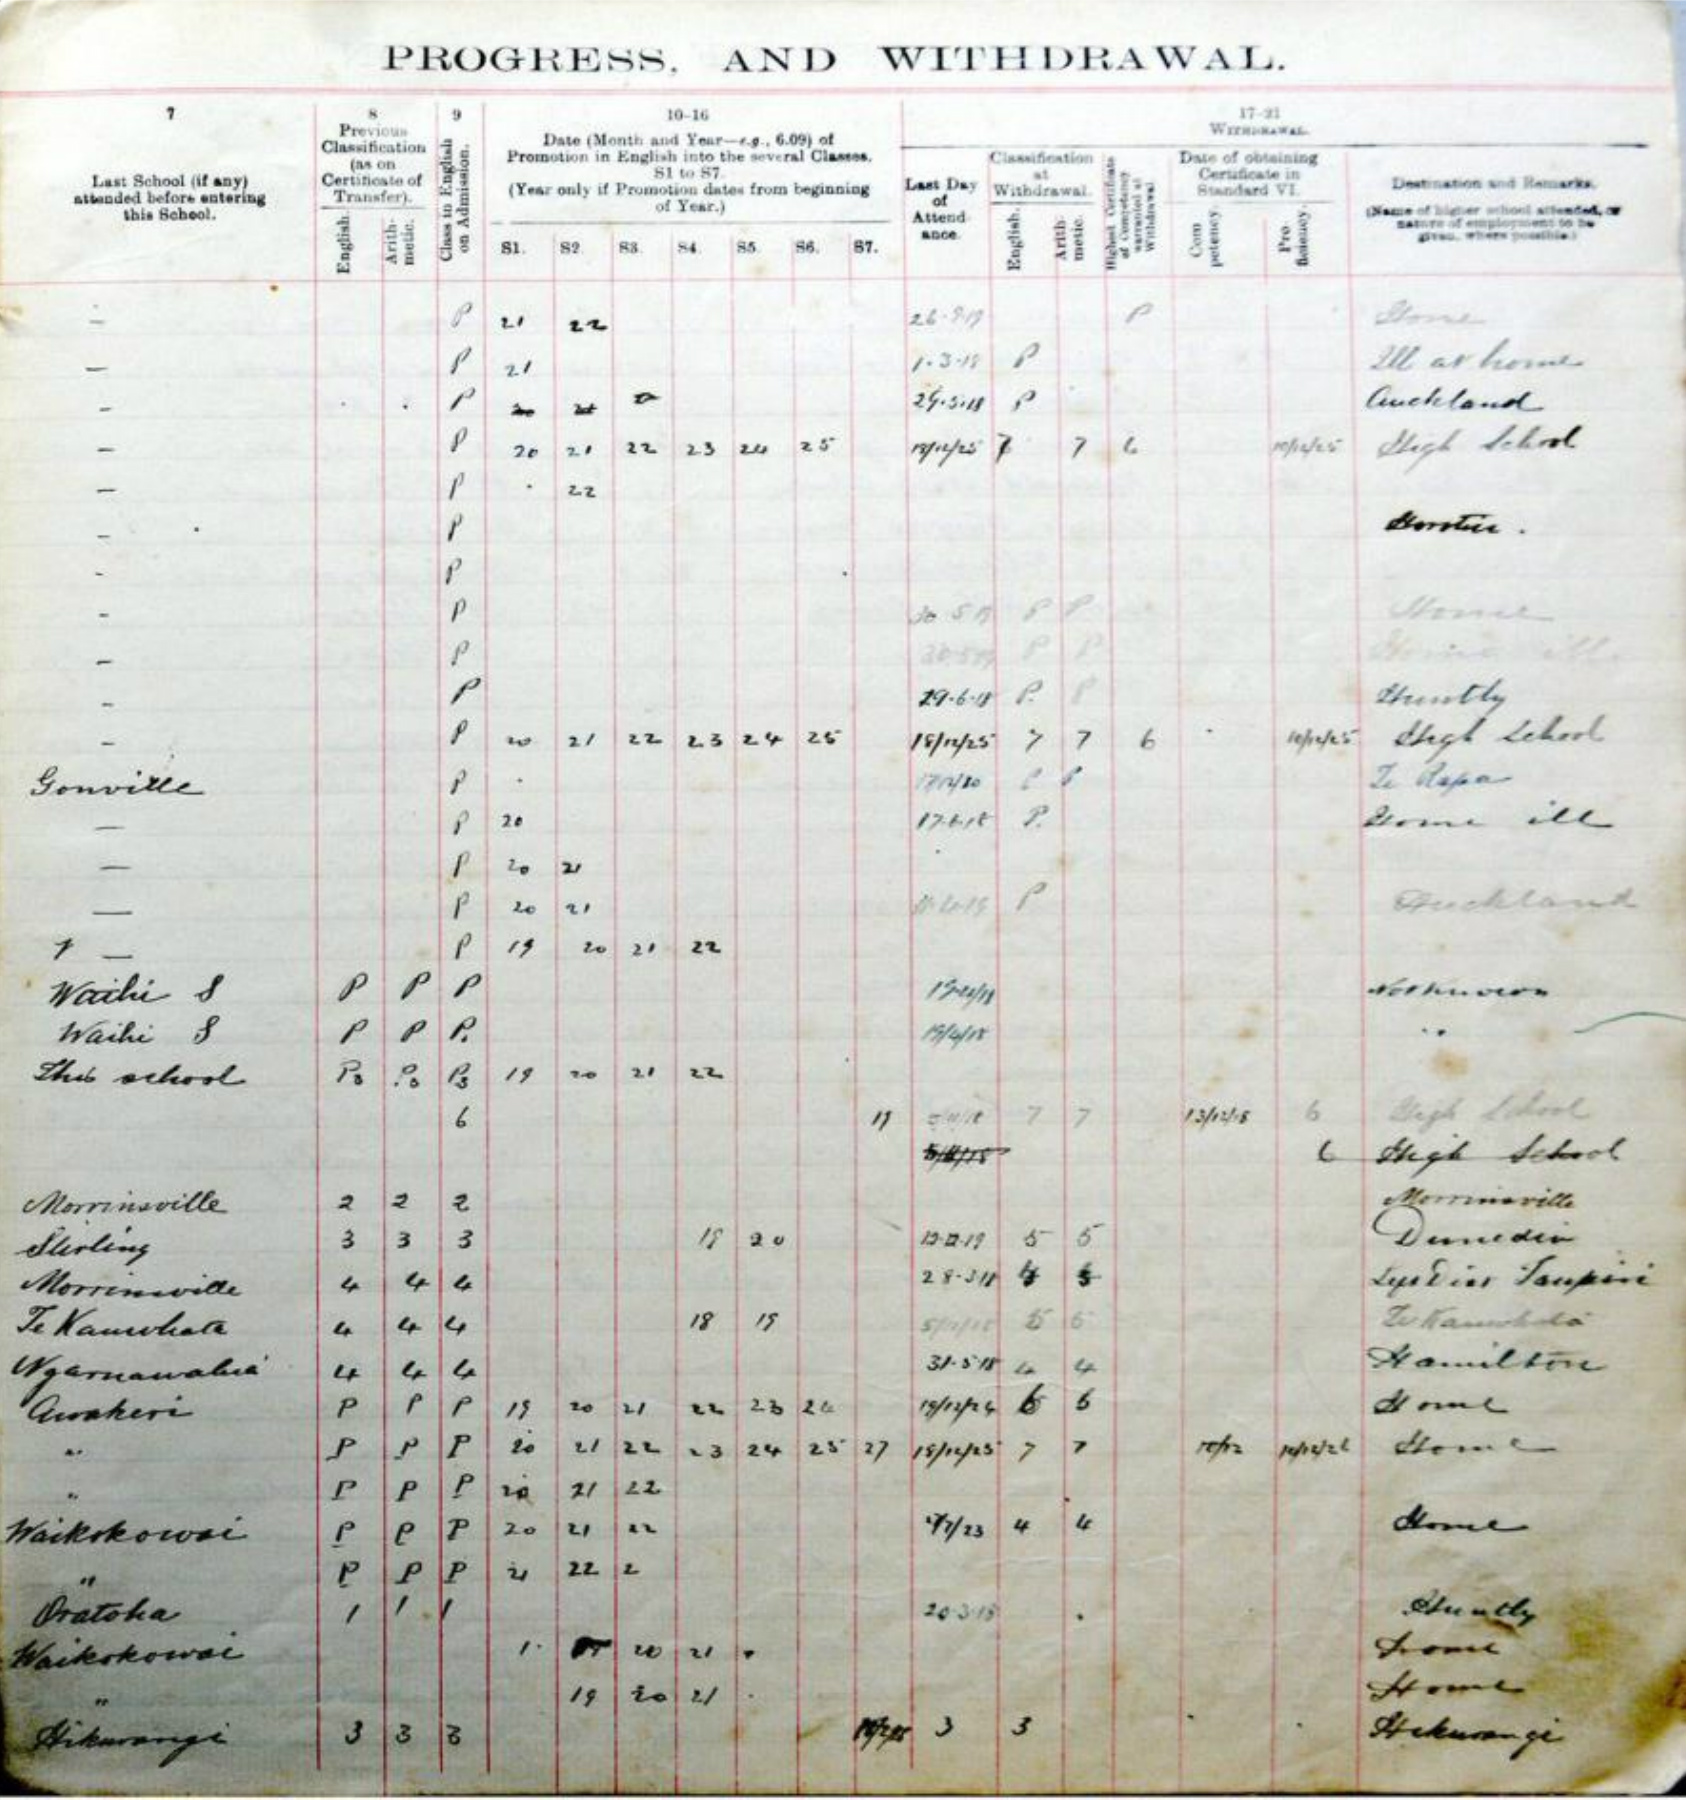 PROGRESS, AND WITHDRAWAL.
7
Last School (if any) attended before entering this School.
8
Previous Classification (as on Certificate of Transfer).
English.
Arith-metic.
9
Class in English on Admission.
10-16
Date (Month and Year—e.g., 6.09) of Promotion in English into the several Classes, S1 to S7.
(Year only if Promotion dates from beginning of Year.)
S1. S2. S3. S4. S5. S6. S7.
17-21
WITHDRAWAL.
Last Day of Attendance.
Classification at Withdrawal.
English.
Arith-metic.
Highest Certificate of Competency warranted at Withdrawal
Date of obtaining Certificate in Standard VI.
Com petency.
Pro-ficiency.
Destination and Remarks.
(Name of higher school attended, or nature of employment to be given, where possible.)
- P 21 22 P Home
- P 21 1-3-18 P Ill at home
- P P Auckland
- P 20 21 22 23 24 25 18/12/25 7 7 6 10/12/25 High School
- P 22
- P
- P
- P P P Home
- P P P Home ill
- P 29-6-18 P. P Huntly
- P 20 21 22 23 24 25 18/12/25 7 7 6 10/12/25 High School
Gonville P P P Te Rapa
— P 20 P. Home ill
— P 20 21
— P 20 21 P Auckland
— P 19 20 21 22
Waihi S P P P Not known
Waihi S P P P. "
This school P3 P3 P3 19 20 21 22
6 19 7 7 13/12/18 6 High School
6 High School
Morrinsville 2 2 2 Morrinsville
Stirling 3 3 3 19 20 5 5 Dunedin
Morrinsville 4 4 4 28-3-18 Taupiri
Te Kauwhata 4 4 4 18 19 5 5 Te Kauwhata
Ngaruawahia 4 4 4 31-5-18 4 4 Hamilton
Awakeri P P P 19 20 21 22 23 24 19/12/24 6 6 Home
" P P P 20 21 22 23 24 25 27 18/12/25 7 7 Home
" P P P 20 21 22
Waikokowai P P P 20 21 22 4 4 Home
" P P P 21 22 2
Oratoha 1 1 1 20-3-18 Huntly
Waikokowai 1 20 21 Home
" 19 20 21 Home
Hikurangi 3 3 3 3 3 Hikurangi